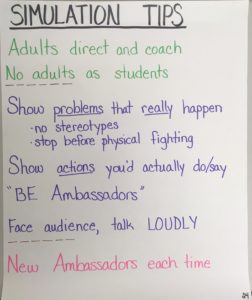 SIMULATION TIPS
Adults direct and coach
No adults as students
Show problems that really happen
·no stereotypes
·stop before physical fighting
Show actions you'd actually do/say
"BE Ambassadors"
Face audience, talk LOUDLY
New Ambassadors each time